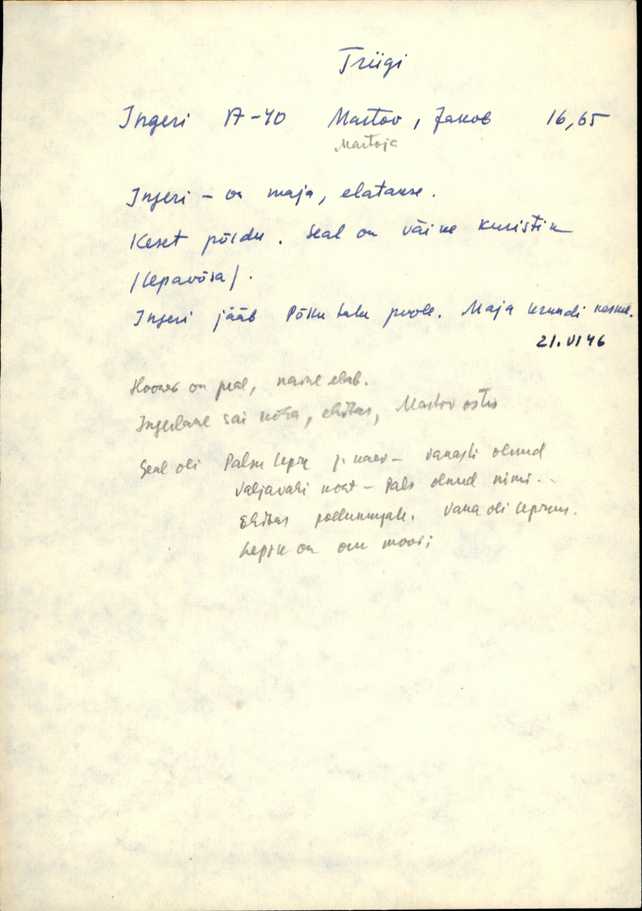 Triigi
Ingeri A-40 Mastov, Jakob 16,65
Ingeri - on maja, elatakse.
Keset põldu. Seal on väike kuristik
/lepavõsa/.
Ingeri jääb Põllu talu poole. Maja krundi keskel.
21.VI 46
Hoones on peal, naine elab.
Ingerlane sai koha, ehitas, Mastov ostis
Seal oli Palsu lepik ja kaev - vanasti olnud
Väljavahi koht - Pals olnud nimi..
Ehitas põllumajale. Vana oli lepikus.
Lepik on om moodi